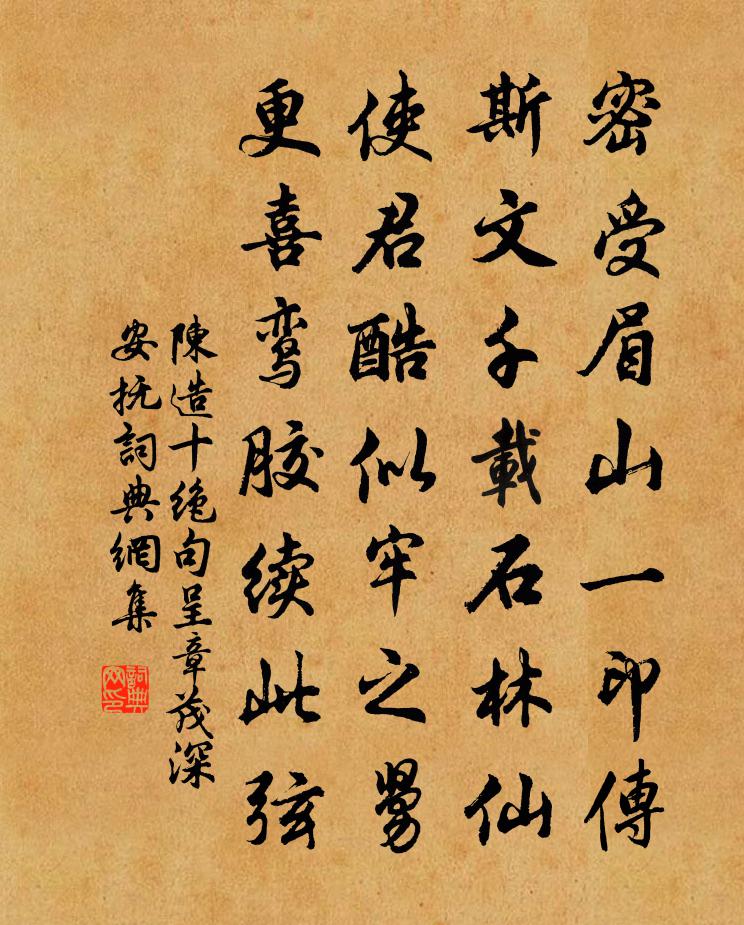 密受眉山一印傳
斯文千載石林仙
使君酷似牢之舅
更喜鸾胶续此弦
陳造十绝句呈章茂深
安抚詞典網集
詞典
网印